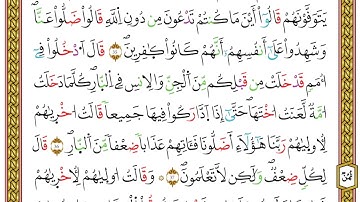 يَتَوَفَّوْنَهُمْ قَالُوٓا۟ أَيْنَ مَا كُنتُمْ تَدْعُونَ مِن دُونِ اللَّهِ قَالُوا۟ ضَلُّوا۟ عَنَّا
وَشَهِدُوا۟ عَلَىٰٓ أَنفُسِهِمْ أَنَّهُمْ كَانُوا۟ كَٰفِرِينَ ۝ قَالَ ادْخُلُوا۟ فِىٓ
أُمَمٍ قَدْ خَلَتْ مِن قَبْلِكُم مِّنَ الْجِنِّ وَالْإِنسِ فِى النَّارِ كُلَّمَا دَخَلَتْ
أُمَّةٌ لَّعَنَتْ أُخْتَهَا حَتَّىٰٓ إِذَا ادَّارَكُوا۟ فِيهَا جَمِيعًا قَالَتْ أُخْرَىٰهُمْ
لِأُولَىٰهُمْ رَبَّنَا هَٰٓؤُلَآءِ أَضَلُّونَا فَـَٔاتِهِمْ عَذَابًا ضِعْفًا مِّنَ النَّارِ قَالَ
لِكُلٍّ ضِعْفٌ وَلَٰكِن لَّا تَعْلَمُونَ ۝ وَقَالَتْ أُولَىٰهُمْ لِأُخْرَىٰهُمْ